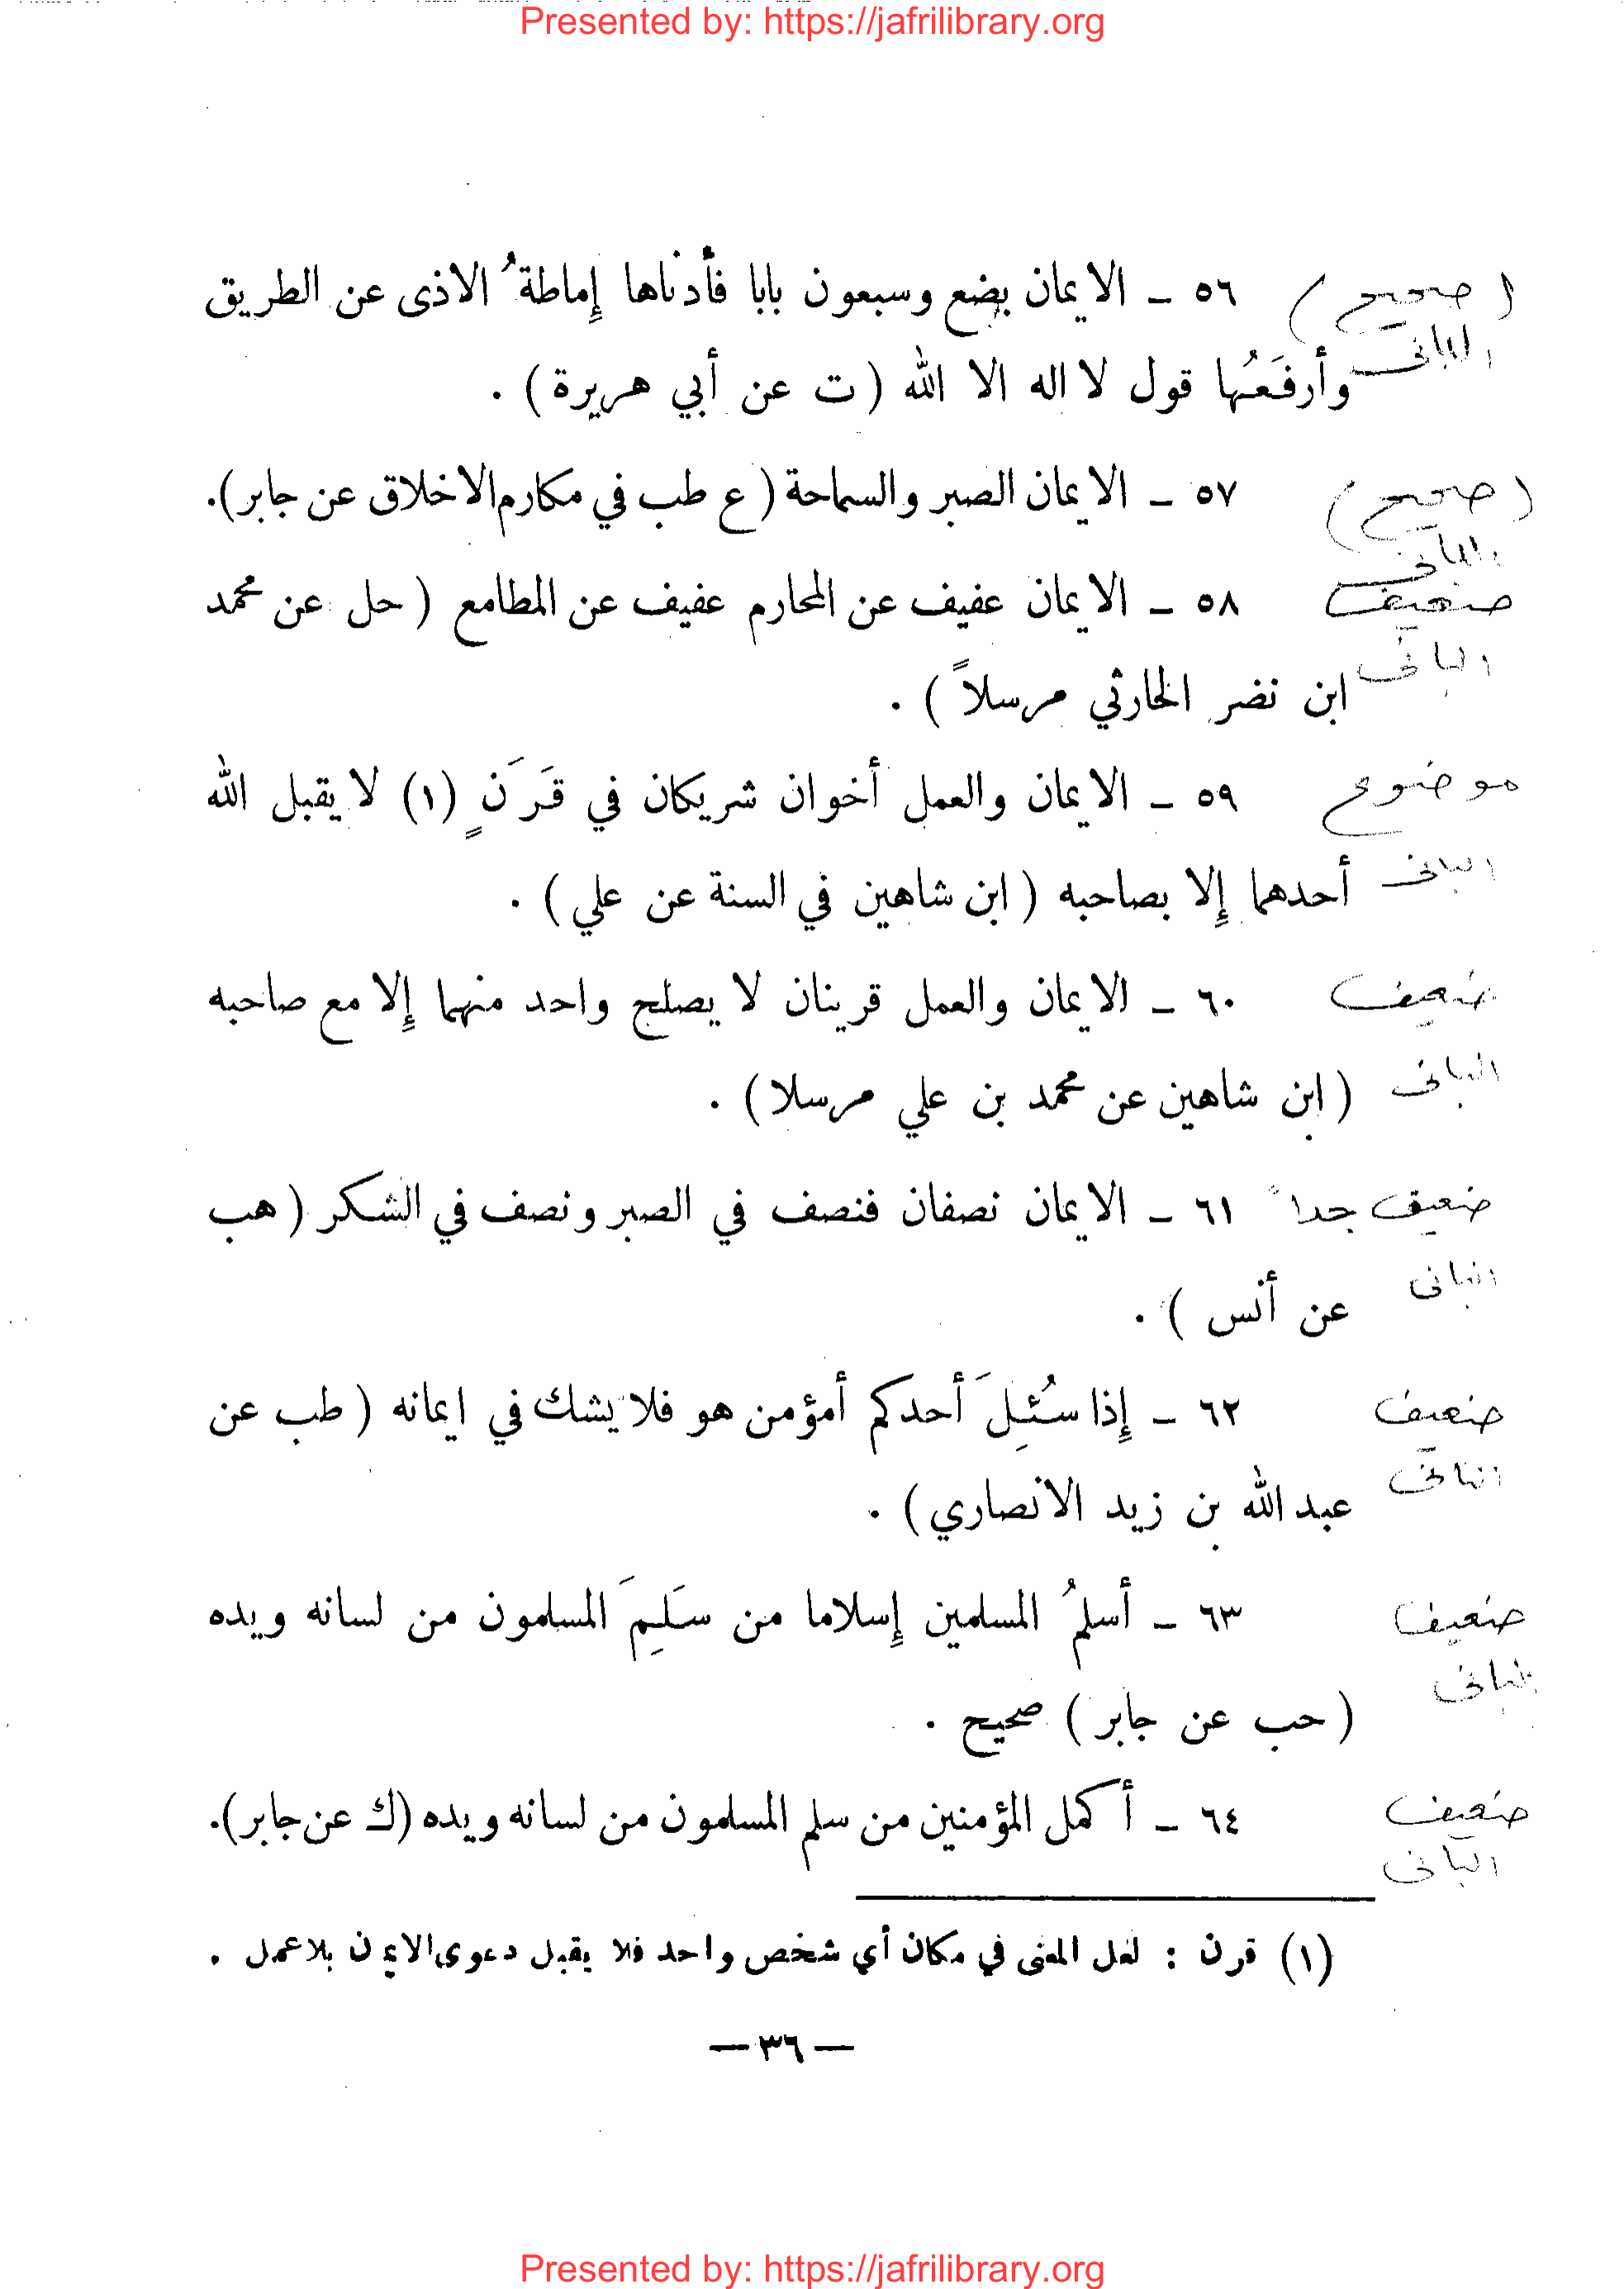 Presented by: https://jafrilibrary.org
(صحيح) ٥٦ ـ الايمان بضع وسبعون بابا فأدناها إماطةُ الاذى عن الطريق
البانى وأرفَعُها قول لا اله الا الله (ت عن أبي هريرة) .
(صحيح) ٥٧ ـ الايمان الصبر والسماحة (ع طب في مكارم الاخلاق عن جابر).
البانى
ضعيف ٥٨ ـ الايمان عفيف عن المحارم عفيف عن المطامع (حل عن محمد
البانى ابن نضر الحارثي مرسلاً) .
موضوع ٥٩ ـ الايمان والعمل أخوان شريكان في قَرَنٍ (١) لا يقبل الله
البانى أحدهما إلا بصاحبه (ابن شاهين في السنة عن علي) .
ضعيف ٦٠ ـ الايمان والعمل قرينان لا يصلح واحد منهما إلا مع صاحبه
البانى (ابن شاهين عن محمد بن علي مرسلا) .
ضعيف جداً ٦١ ـ الايمان نصفان فنصف في الصبر ونصف في الشكر (هب
البانى عن أنس) .
ضعيف ٦٢ ـ إذا سُئِلَ أحدكم أمؤمن هو فلا يشك في ايمانه (طب عن
البانى عبد الله بن زيد الانصاري) .
ضعيف ٦٣ ـ أسلمُ المسلمين إسلاما من سَلِمَ المسلمون من لسانه ويده
البانى (حب عن جابر) صحيح .
ضعيف ٦٤ ـ أكمل المؤمنين من سلم المسلمون من لسانه ويده (ك عن جابر).
البانى
(١) قرن : لعل المعنى في مكان أي شخص واحد فلا يقبل دعوى الايمن بلا عمل .
— ٣٦ —
Presented by: https://jafrilibrary.org